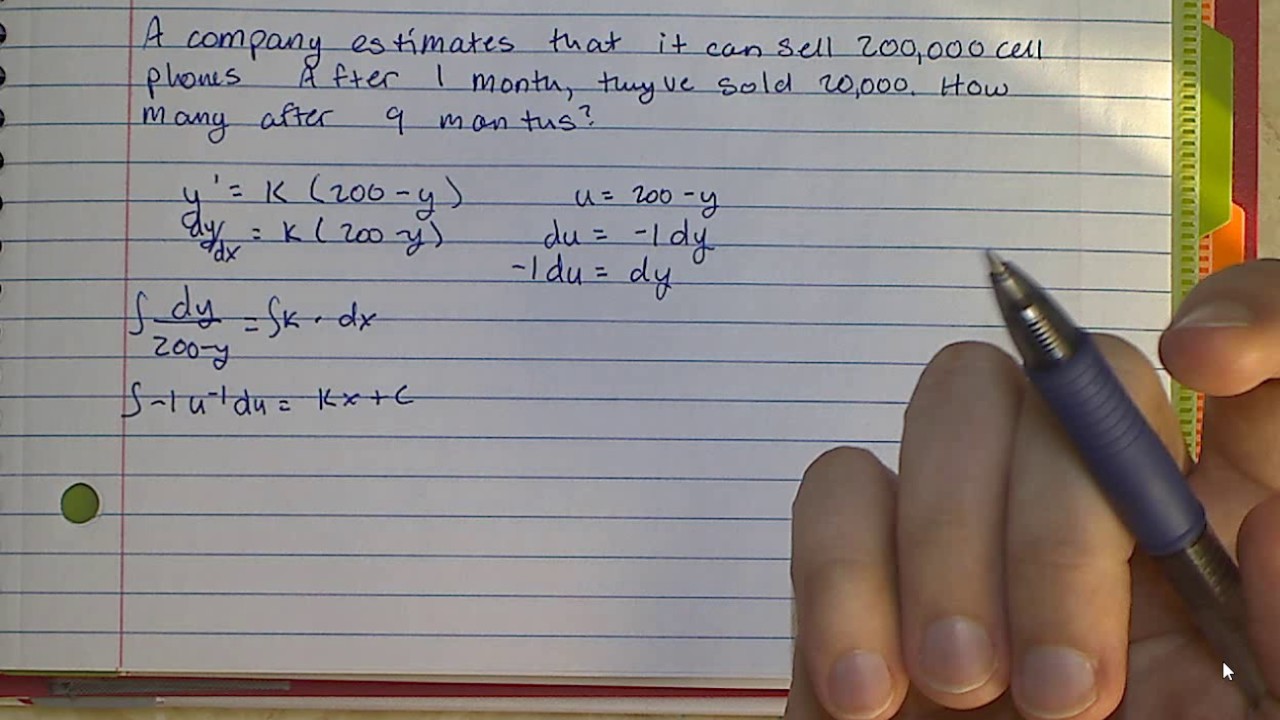 A company estimates that it can sell 200,000 cell
phones After 1 month, they've sold 20,000. How
many after 9 months?
y' = K (200-y) u = 200-y
dy/dx = K (200-y) du = -1dy
-1du = dy
∫ dy/200-y = ∫K · dx
∫-1u⁻¹du = Kx+C